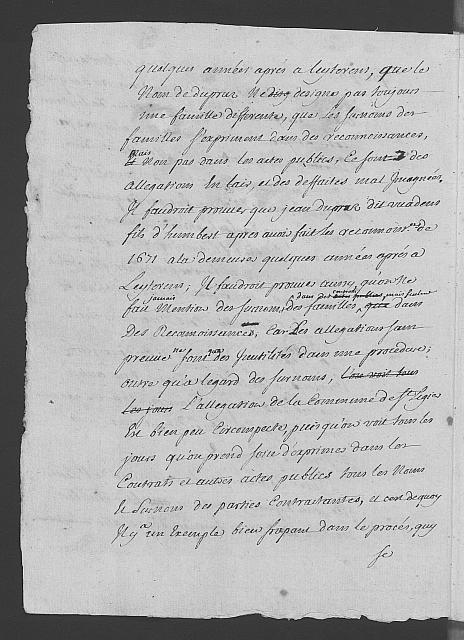 quelques années après a Leutorens, que le
Nom de dupraz Ne designe pas toujours
une famille differente, que les surnoms des
familles s'expriment dans des reconnoissances,
mais Non pas dans les actes publics, Ce sont des
allegations En l'air, et des deffaites mal Imaginées,
Il faudroit prouver que jean dupraz dit
fils d'humbert apres avoir fait les reconnoiss.ces de
1671 a la demeuré quelques années après a
Leutorens; Il faudroit prouver aussi, qu'on Ne
fait jamais Mention des surnoms des familles, dans des contrats publics, mais seulem.t dans
Des Reconnoissances, Car Les allegations sans
preuve Ne sont que des Inutilités dans une procedure;
outre qu'a l'egard des surnoms, l'on voit tous
les jours L'allegation de la Commune de S.t
Est bien peu Circonspecte, puisqu'on voit tous les
jours qu'on prend soin d'exprimer dans les
Contrats et autres actes publics tous les Noms
& Surnoms des parties Contractantes, et c'est de quoy
Il y a un Exemple bien frapant dans le procés, quy
se